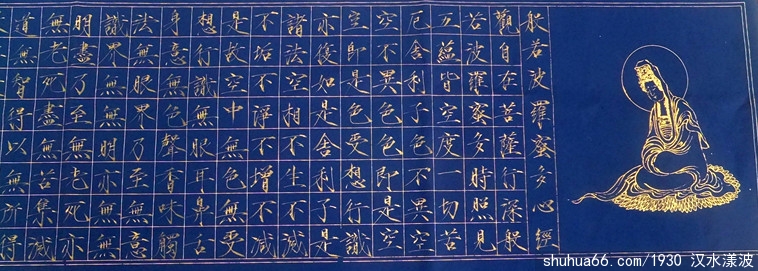 般若波羅蜜多心經
觀自在菩薩行深般
若波羅蜜多時照見
五蘊皆空度一切苦
厄舍利子色不異空
空不異色色即是空
空即是色受想行識
亦復如是舍利子是
諸法空相不生不滅
不垢不淨不增不減
是故空中無色無受
想行識無眼耳鼻舌
身意無色聲香味觸
法無眼界乃至無意
識界無無明亦無無
明盡乃至無老死亦
無老死盡無苦集滅
道無智得以無所得
shuhua66.com/1930 汉水漾波